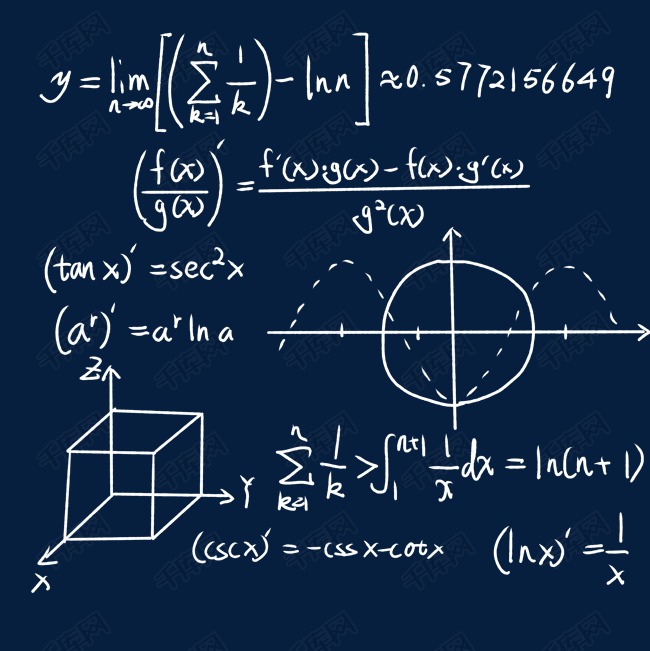 y = lim n→∞ [(∑ k=1 n 1/k) - ln n] ≈ 0.5772156649
(f(x)/g(x))' = f'(x)·g(x) - f(x)·g'(x) / g²(x)
(tan x)' = sec²x
(aʳ)' = aʳ ln a
Z
Y
X
∑ k=1 n 1/k > ∫ 1 n+1 1/x dx = ln(n+1)
(cscx)' = -cssx-cotx
(lnx)' = 1/x
千库网